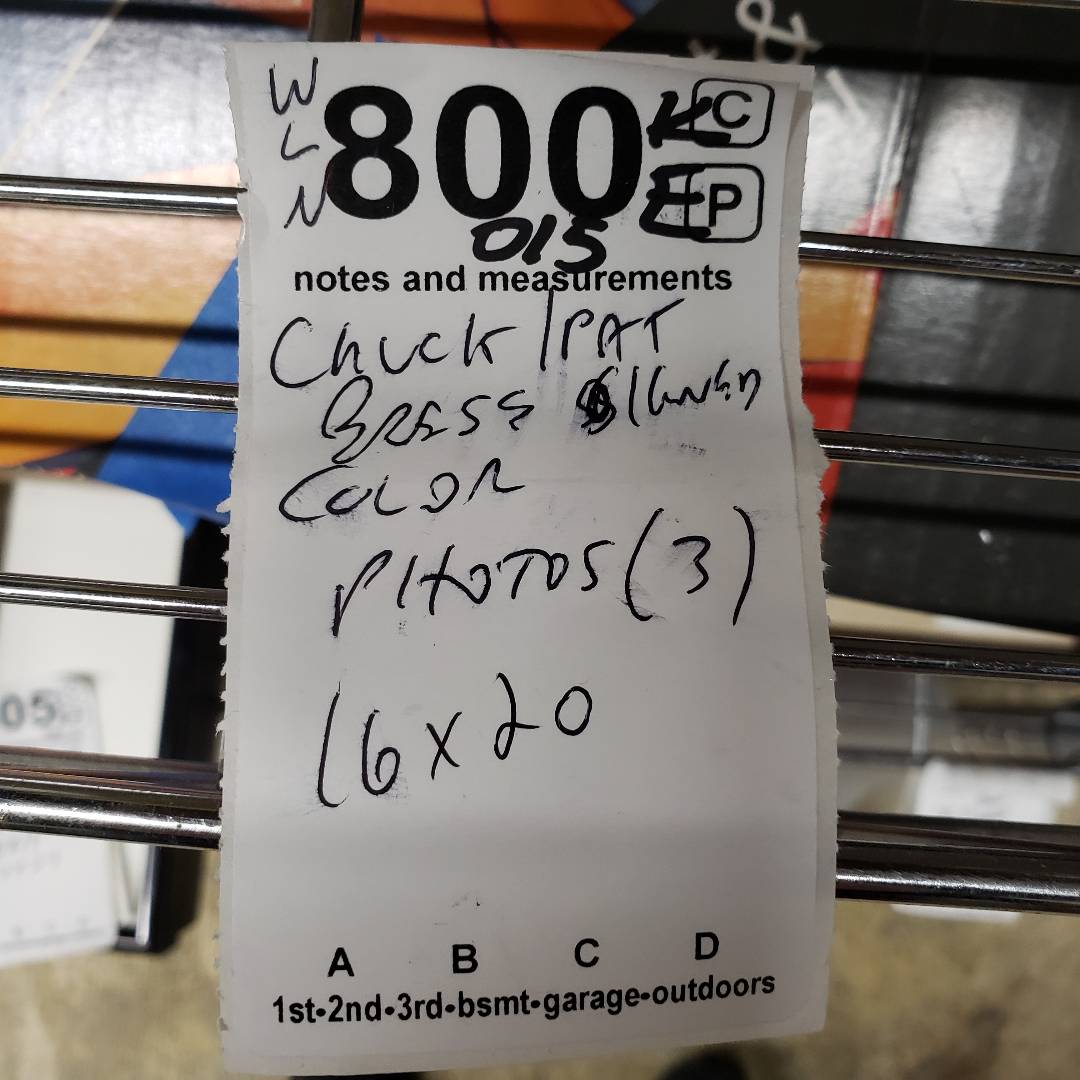 W
L
N
800
C
P
015
notes and measurements
Chuck / PAT
BRESE SIGNED
COLOR
PHOTOS (3)
16 x 20
A B C D
1st•2nd•3rd•bsmt•garage•outdoors
&
05